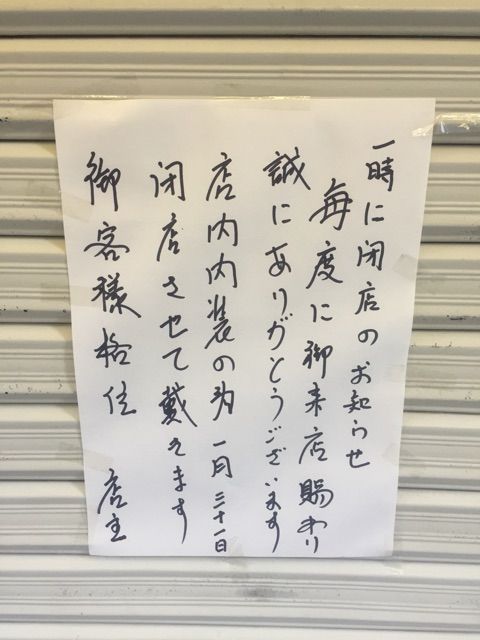 一時に閉店のお知らせ
毎度に御来店賜わり
誠にありがとうございます
店内内装の為一月三十一日
閉店させて戴きます
御客様格位 店主